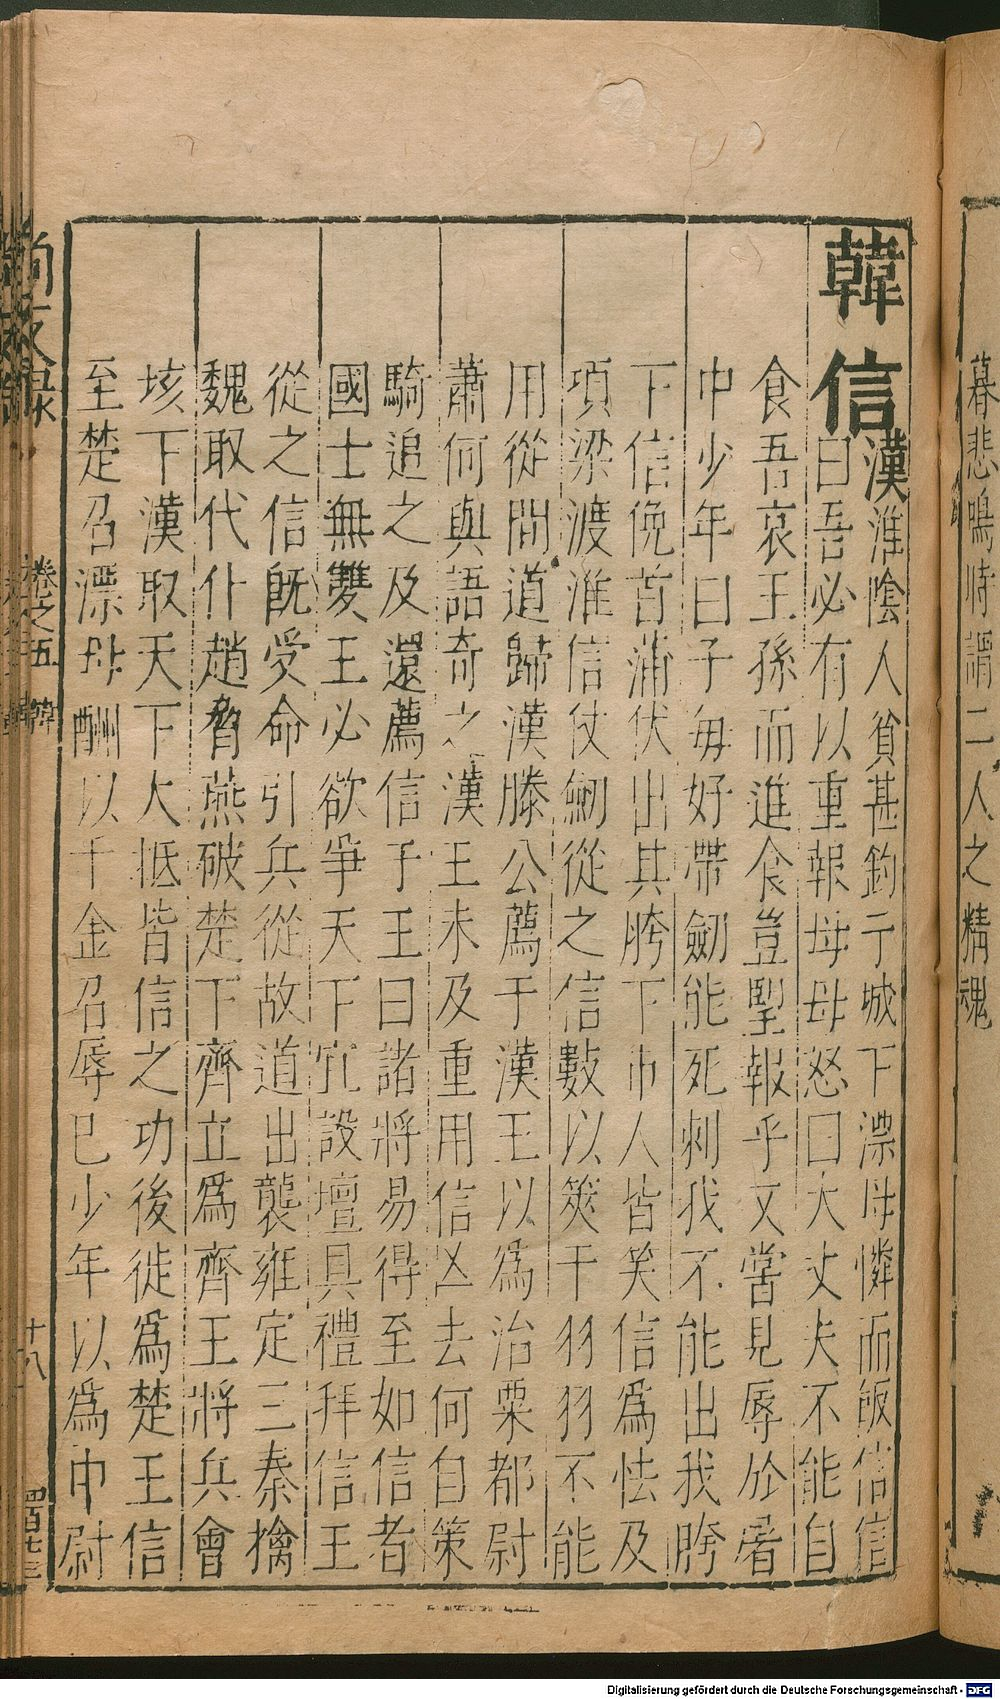 韓信
漢淮陰人貧甚釣于城下漂母憐而飯信信
曰吾必有以重報母母怒曰大丈夫不能自
食吾哀王孫而進食豈朢報乎又嘗見辱於屠
中少年曰子每好帶劒能死刺我不能出我胯
下信俛首蒲伏出其胯下市人皆笑信爲怯及
項梁渡淮信仗劒從之信數以筴干羽羽不能
用從間道歸漢滕公薦于漢王以爲治粟都尉
蕭何與語奇之漢王未及重用信亾去何自策
騎追之及還薦信于王曰諸將易得至如信者
國士無雙王必欲爭天下宜設壇具禮拜信王
從之信既受命引兵從故道出襲雍定三秦擒
魏取代仆趙脅燕破楚下齊立爲齊王將兵會
垓下漢取天下大抵皆信之功後徙爲楚王信
至楚召漂母酬以千金召辱已少年以爲中尉
尚友錄 卷之五 韓 十八 四百七三
暮悲鳴時謂二人之精魂
Digitalisierung gefördert durch die Deutsche Forschungsgemeinschaft - DFG